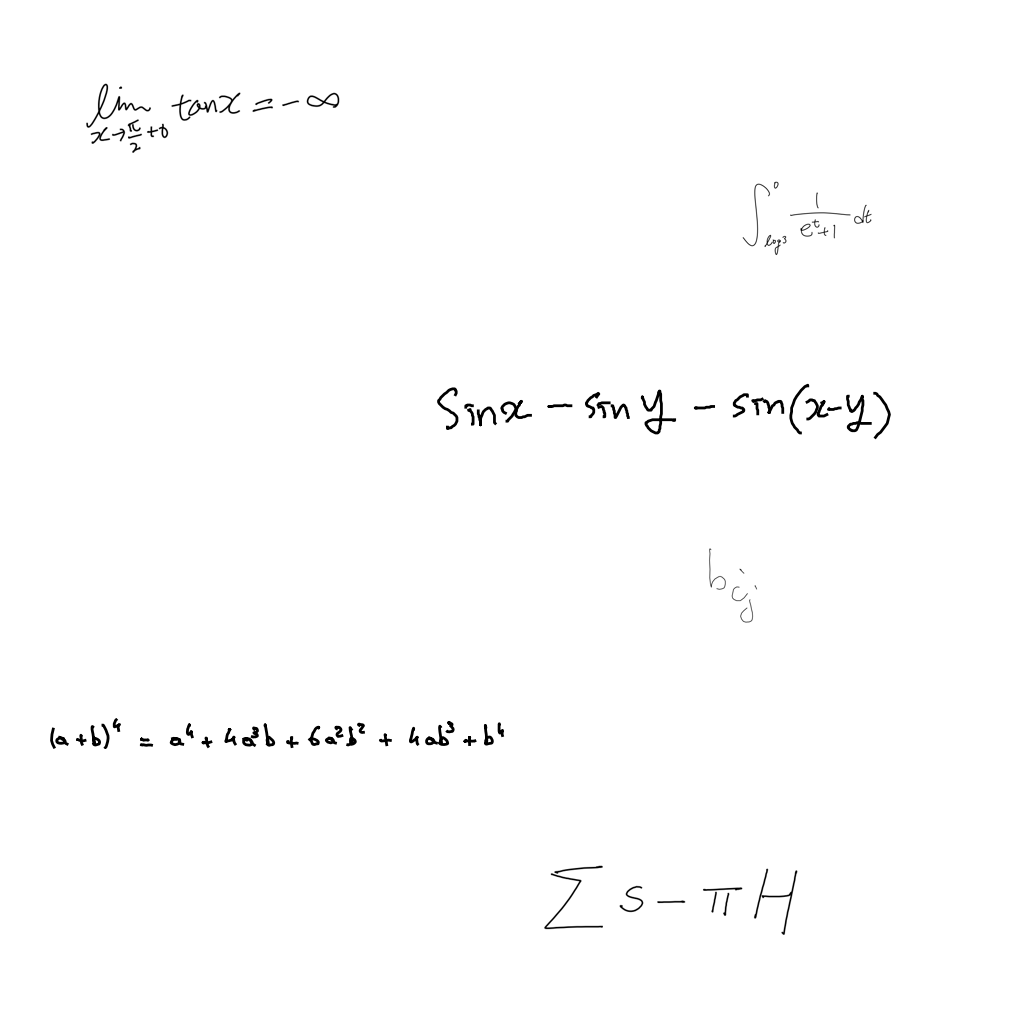 \lim_{x \to \frac{\pi}{2}+0} \tan x = -\infty
\int_{\log 3}^{0} \frac{1}{e^t+1} dt
\sin x - \sin y - \sin(x-y)
b_{ij}
(a+b)^4 = a^4 + 4a^3b + 6a^2b^2 + 4ab^3 + b^4
\sum s - \pi H